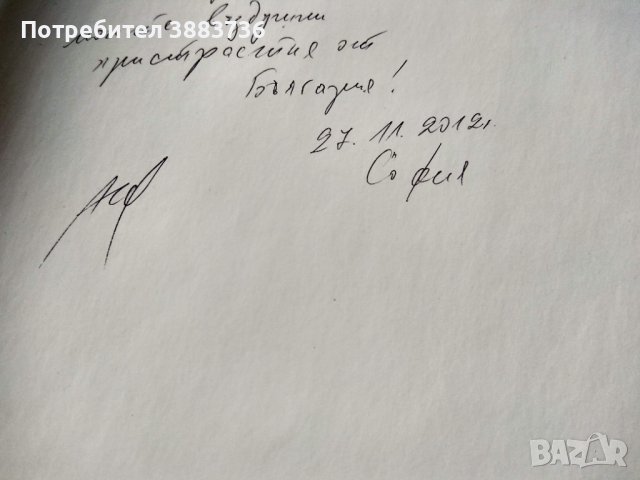 Потребител 3883736
въздушни
пристрастия от
България!
27.11.2012г.
София
BAZAR